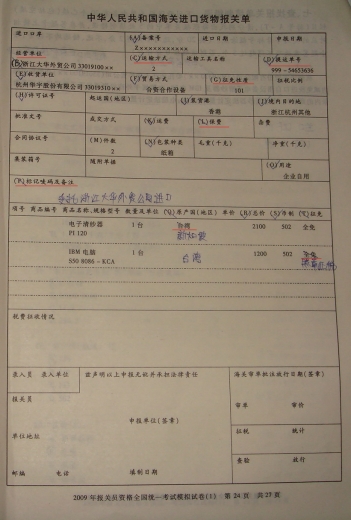 中华人民共和国海关进口货物报关单
进口口岸 (A)备案号 进口日期 申报日期
Z××××××××××
经营单位 (C)运输方式 运输工具名称 (D)提运单号
(B)浙江大华外贸公司33019100×× 2 999-54653636
(E)收货单位 (F)贸易方式 (G)征免性质 征税比例
杭州华宇股份有限公司33019310×× 合资合作设备 101
(H)许可证号 起运国(地区) (I)装货港 (J)境内目的地
香港 浙江杭州其他
批准文号 成交方式 (K)运费 (L)保费 杂费
合同协议号 (M)件数 (N)包装种类 毛重(千克) 净重(千克)
2 纸箱
集装箱号 随附单据 (O)用途
企业自用
(P)标记唛码及备注
委托浙江大华外贸公司进口
项号 商品编号 商品名称、规格型号 数量及单位 (Q)原产国(地区) 单价 (R)总价 (S)币制 (T)征免
电子清纱器 1台 台湾 2100 502 全免
PI 120
IBM电脑 1台 台湾 1200 502 全免
S50 8086-KCA
税费征收情况
录入员 录入单位 兹声明以上申报无讹并承担法律责任 海关审单批注放行日期(签章)
报关员
审单 审价
申报单位(签章)
单位地址 征税 统计
查验 放行
邮编 电话 填制日期
2009年报关员资格全国统一考试模拟试卷(1) 第24页 共25页